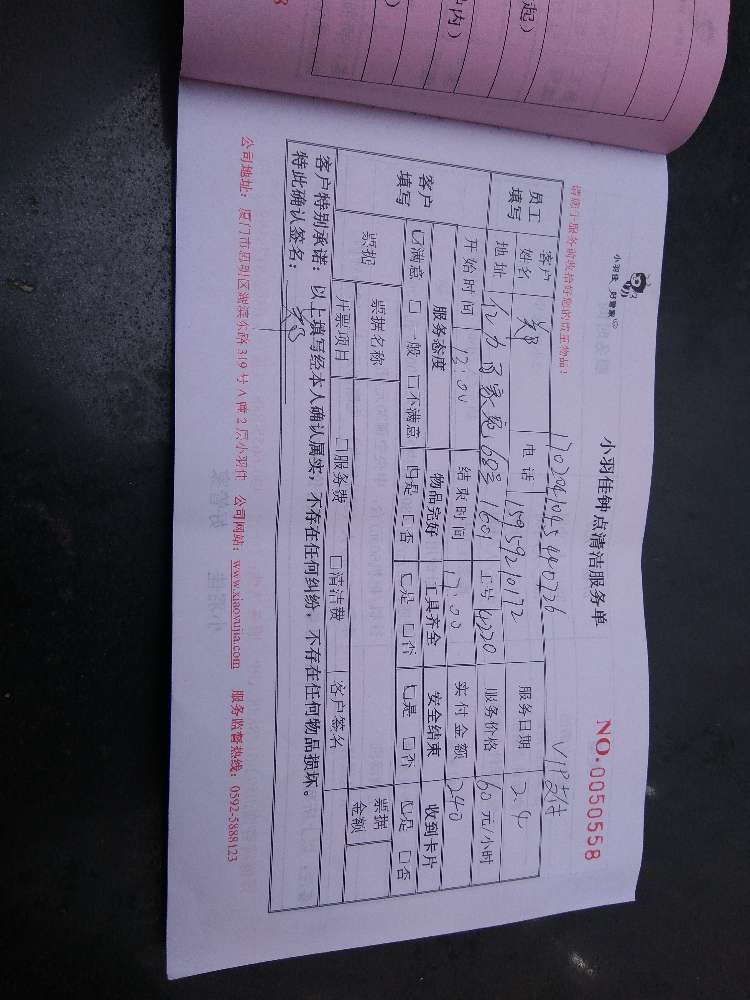 起）
内）
小羽佳 好管家
小羽佳钟点清洁服务单
NO.0050558
请您于服务前收拾好您的贵重物品！
VIP
员工填写
客户姓名
电话 15959210172
服务日期 2.4
地址
百家苑 68号 1601
工号 4220
服务价格 60 元/小时
开始时间 13:00
结束时间 17:00
实付金额 240
客户填写
服务态度 物品完好 工具齐全 安全结束 收到卡片
☑满意 □一般 □不满意 ☑是 □否 ☑是 □否 ☑是 □否 ☑是 □否
票据
票据名称 客户签名 票据金额
开票项目 □服务费 □清洁费
客户特别承诺：以上填写经本人确认属实，不存在任何纠纷，不存在任何物品损坏。
特此确认签名：
公司地址：厦门市思明区湖滨东路319号A幢2层小羽佳 公司网站：www.xiaoyujia.com 服务监督热线：0592-5888123